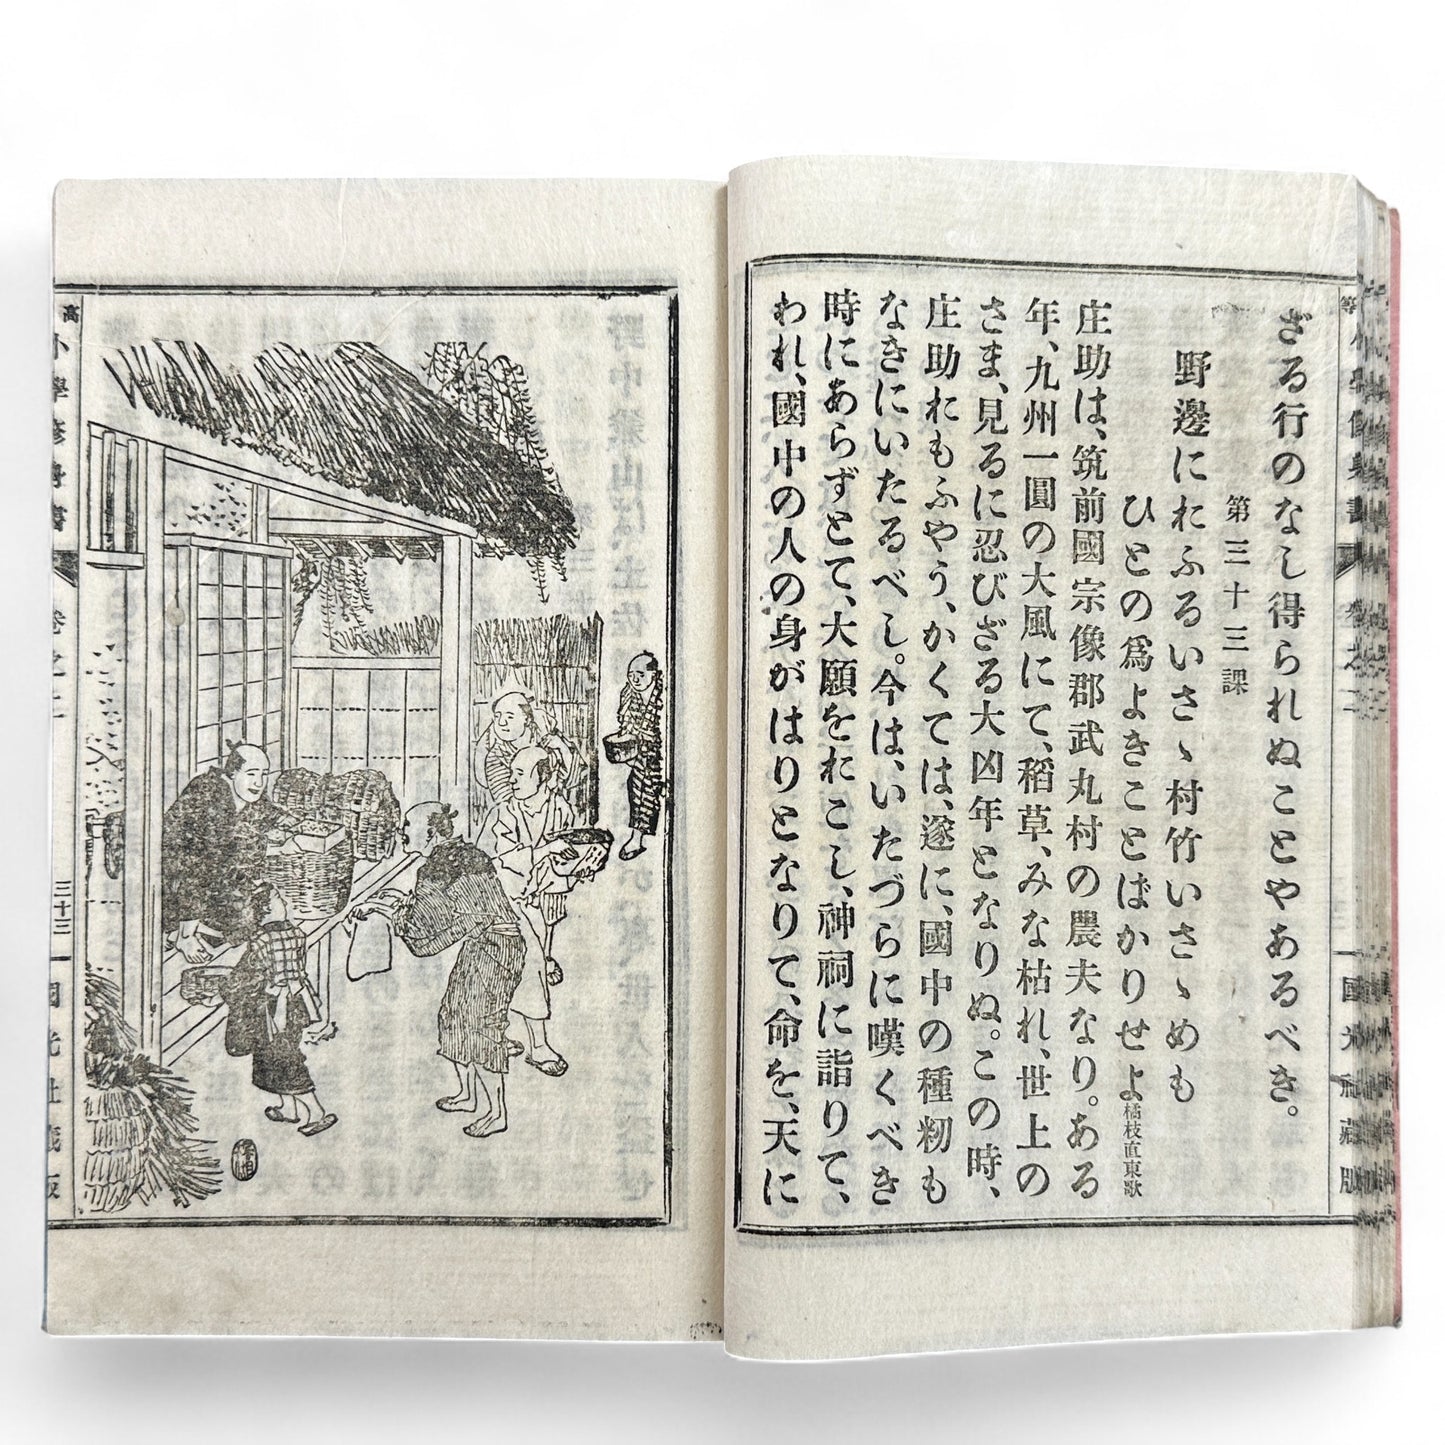 ざる行のなし得られぬことやあるべき。
第三十三課
野邊にれふるいさゝ村竹いさゝめも
ひとの爲よきことばかりせよ橘枝直東歌
庄助は、筑前國宗像郡武丸村の農夫なり。ある
年、九州一圓の大風にて、稻草、みな枯れ、世上の
さま、見るに忍びざる大凶年となりぬ。この時、
庄助れもふやう、かくては、遂に、國中の種籾も
なきにいたるべし。今は、いたづらに嘆くべき
時にあらずとて、大願をれこし、神祠に詣りて、
われ、國中の人の身がはりとなりて、命を、天に
高
小學修身書
卷之二
三十三
國光社藏版